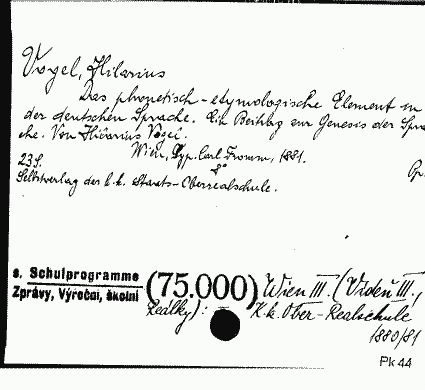 Vogel, Hilarius
Das phonetisch-etymologische Element in
der deutschen Sprache. Ein Beitrag zur Genesis der Spra
che. Von Hilarius Vogel.
Wien, Typ. Carl Fromm, 1881.
23 S. 8°
Selbstverlag der k. k. Staats-Oberrealschule.
s. Schulprogramme
Zprávy, Výroční, školní
(75.000)
Wien III. (Vídeň III.,
Reálky):
K. k. Ober-Realschule
1880/81
Pk 44